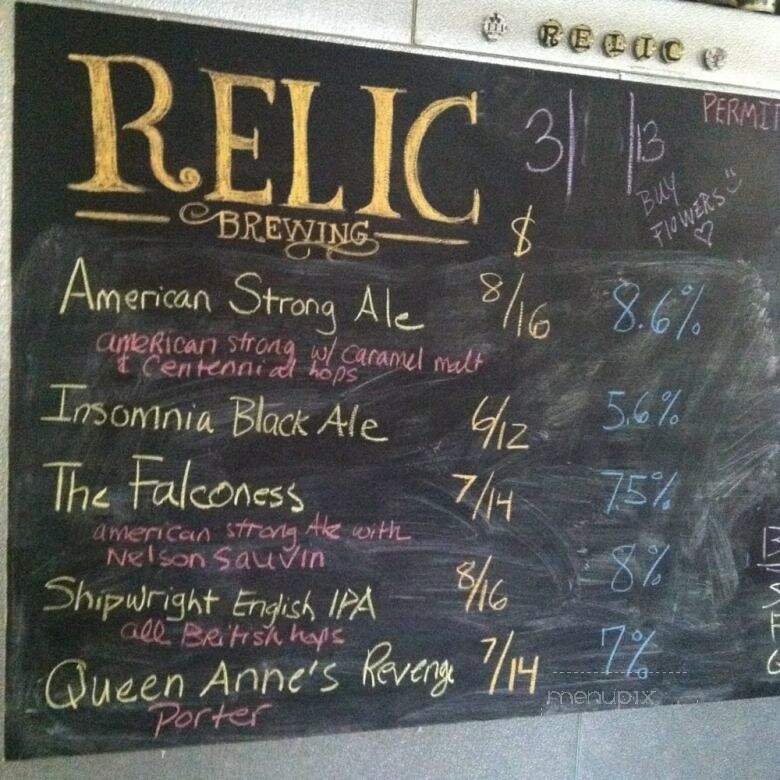 RELIC
RELIC
BREWING
3 13
PERMIT
BUY
FLOWERS
$
American Strong Ale 8/16 8.6%
american strong w/ caramel malt
& Centennial hops
Insomnia Black Ale 6/12 5.6%
The Falconess 7/14 7.5%
american strong Ale with
Nelson Sauvin
Shipwright English IPA 8/16 8%
all British hops
Queen Anne's Revenge 7/14 7%
Porter
menupix